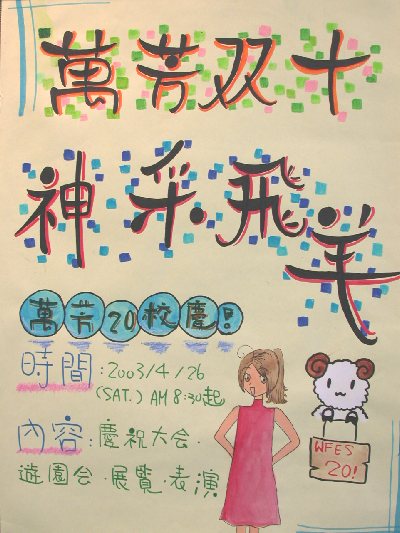 萬芳双十
神采飛羊
萬芳20校慶!
時間:2003/4/26
(SAT.) AM 8:30起
內容:慶祝大会.
遊園会.展覽.表演
WFES
20!